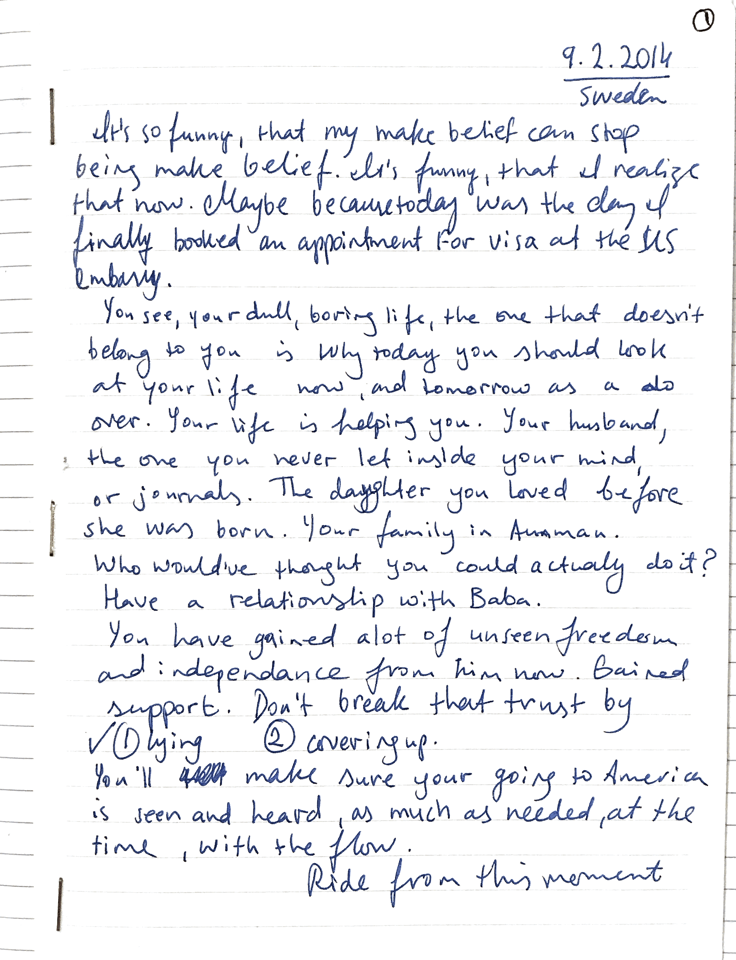 ①
9.2.2014
Sweden
It's so funny, that my make belief can stop
being make belief. It's funny, that I realize
that now. Maybe because today was the day I
finally booked an appointment for visa at the US
embassy.
You see, your dull, boring life, the one that doesn't
belong to you is why today you should look
at your life now, and tomorrow as a do
over. Your life is helping you. Your husband,
the one you never let inside your mind,
or journals. The daughter you loved before
she was born. Your family in Amman.
Who would've thought you could actualy do it?
Have a relationship with Baba.
You have gained alot of unseen freedom
and independance from him now. Gained
support. Don't break that trust by
✓ ① lying ② covering up.
You'll make sure your going to America
is seen and heard, as much as needed, at the
time, with the flow.
Ride from this moment